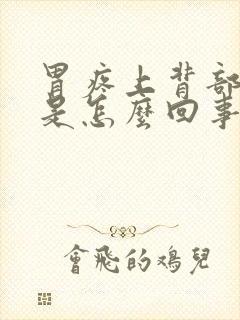 胃疼上背部
是怎麼回事
會飛的鴻兒